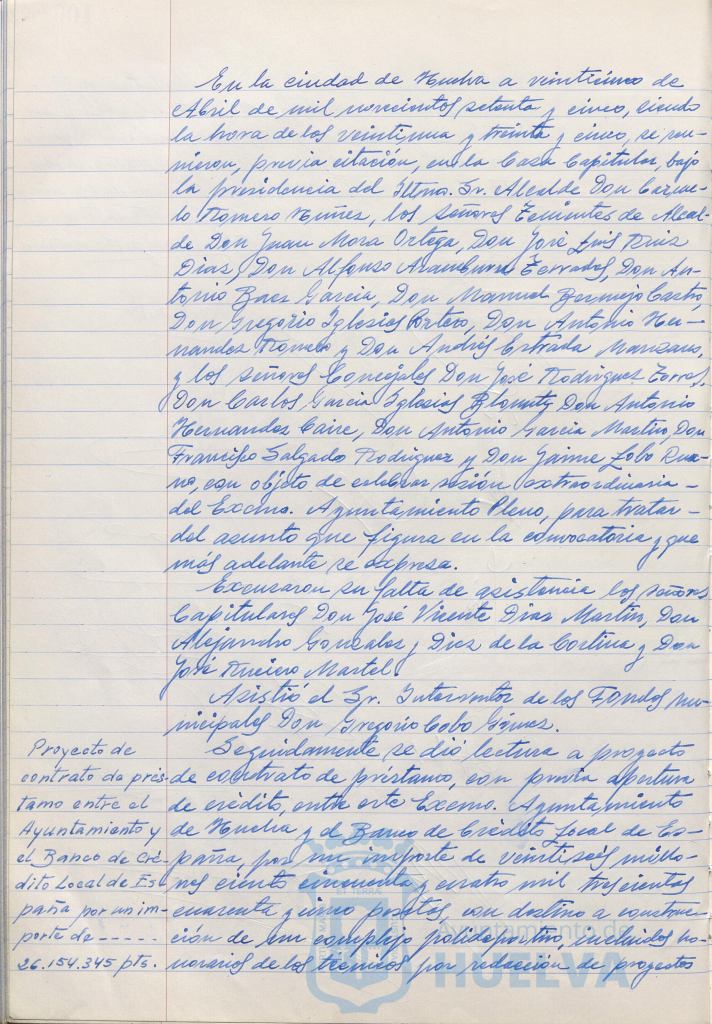 En la ciudad de Huelva a veinticinco de
Abril de mil novecientos setenta y cinco, siendo
la hora de las veintiuna y treinta y cinco, se reu-
nieron, previa citación, en la Casa Capitular, bajo
la presidencia del Iltmo. Sr. Alcalde Don Carme-
lo Romero Núñez, los señores Tenientes de Alcal-
de Don Juan Mora Ortega, Don José Luis Ruiz
Diaz, Don Alfonso Aramburu Terrades, Don An-
tonio Baez Garcia, Don Manuel Bermejo Castro,
Don Gregorio Iglesias Portero, Don Antonio Her-
nandez Romero y Don Andrés Estrada Manzano,
y los señores Concejales Don José Rodriguez Torres,
Don Carlos Garcia Iglesias Don Antonio
Hernandez Caire, Don Antonio Garcia Martin, Don
Francisco Salgado Rodriguez y Don Jaime Lobo Rua-
no, con objeto de celebrar sesión extraordinaria -
del Excmo. Ayuntamiento Pleno, para tratar -
del asunto que figura en la convocatoria y que
más adelante se expresa.
Excusaron su falta de asistencia los señores
Capitulares Don José Vicente Diaz Martin, Don
Alejandro Gonzalez y Diez de la Cortina y Don
José Ruciero Martel.
Asistió el Sr. Interventor de los Fondos mu-
nicipales Don Gregorio Cobo Gómez.
Seguidamente se dió lectura a proyecto
de contrato de préstamo, con previa apertura
de crédito, entre este Excmo. Ayuntamiento
de Huelva y el Banco de Crédito Local de Es-
paña, por un importe de veintiseis millo-
nes ciento cincuenta y cuatro mil trescientas
cuarenta y cinco pesetas, con destino a construc-
ción de un complejo polideportivo, incluidos ho-
norarios de los técnicos por redacción de proyectos
Proyecto de
contrato de prés-
tamo entre el
Ayuntamiento y
el Banco de Cré-
dito Local de Es-
paña por un im-
porte de - - - - -
26.154.345 pts.
Ayuntamiento de
HUELVA